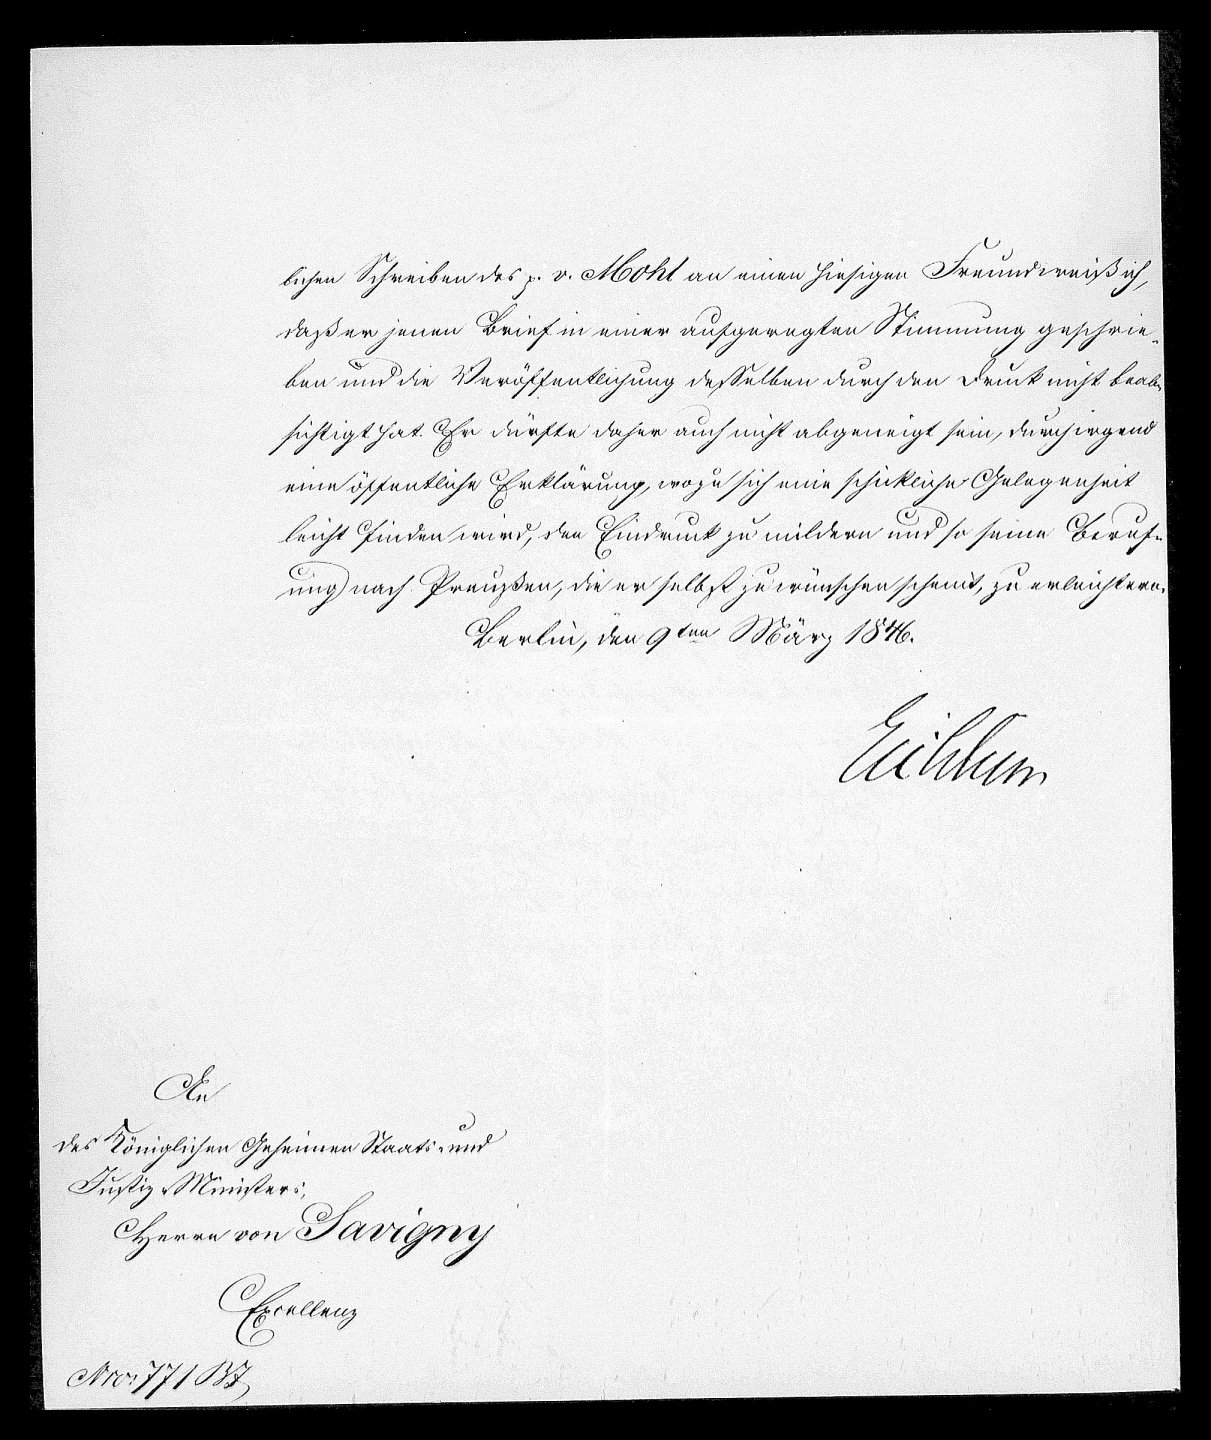 lichen Schreiben des p. v. Mohl an einen hiesigen Freund weiß ich,
daß er jenen Brief in einer aufgeregten Stimmung geschrie-
ben und die Veröffentlichung desselben durch den Druck nicht beab-
sichtigt hat. Er dürfte daher auch nicht abgeneigt sein, durch irgend
eine öffentliche Erklärung, wozu sich eine schickliche Gelegenheit
leicht finden wird, den Eindruck zu mildern und so seine Beruf-
ung nach Preußen, die er selbst zu wünschen scheint, zu erleichtern.
Berlin, den 9ten März 1846.
Eichhorn
An
des Königlichen Geheimen Staats- und
Justiz-Ministers,
Herrn von Savigny
Excellenz
Nro: 771